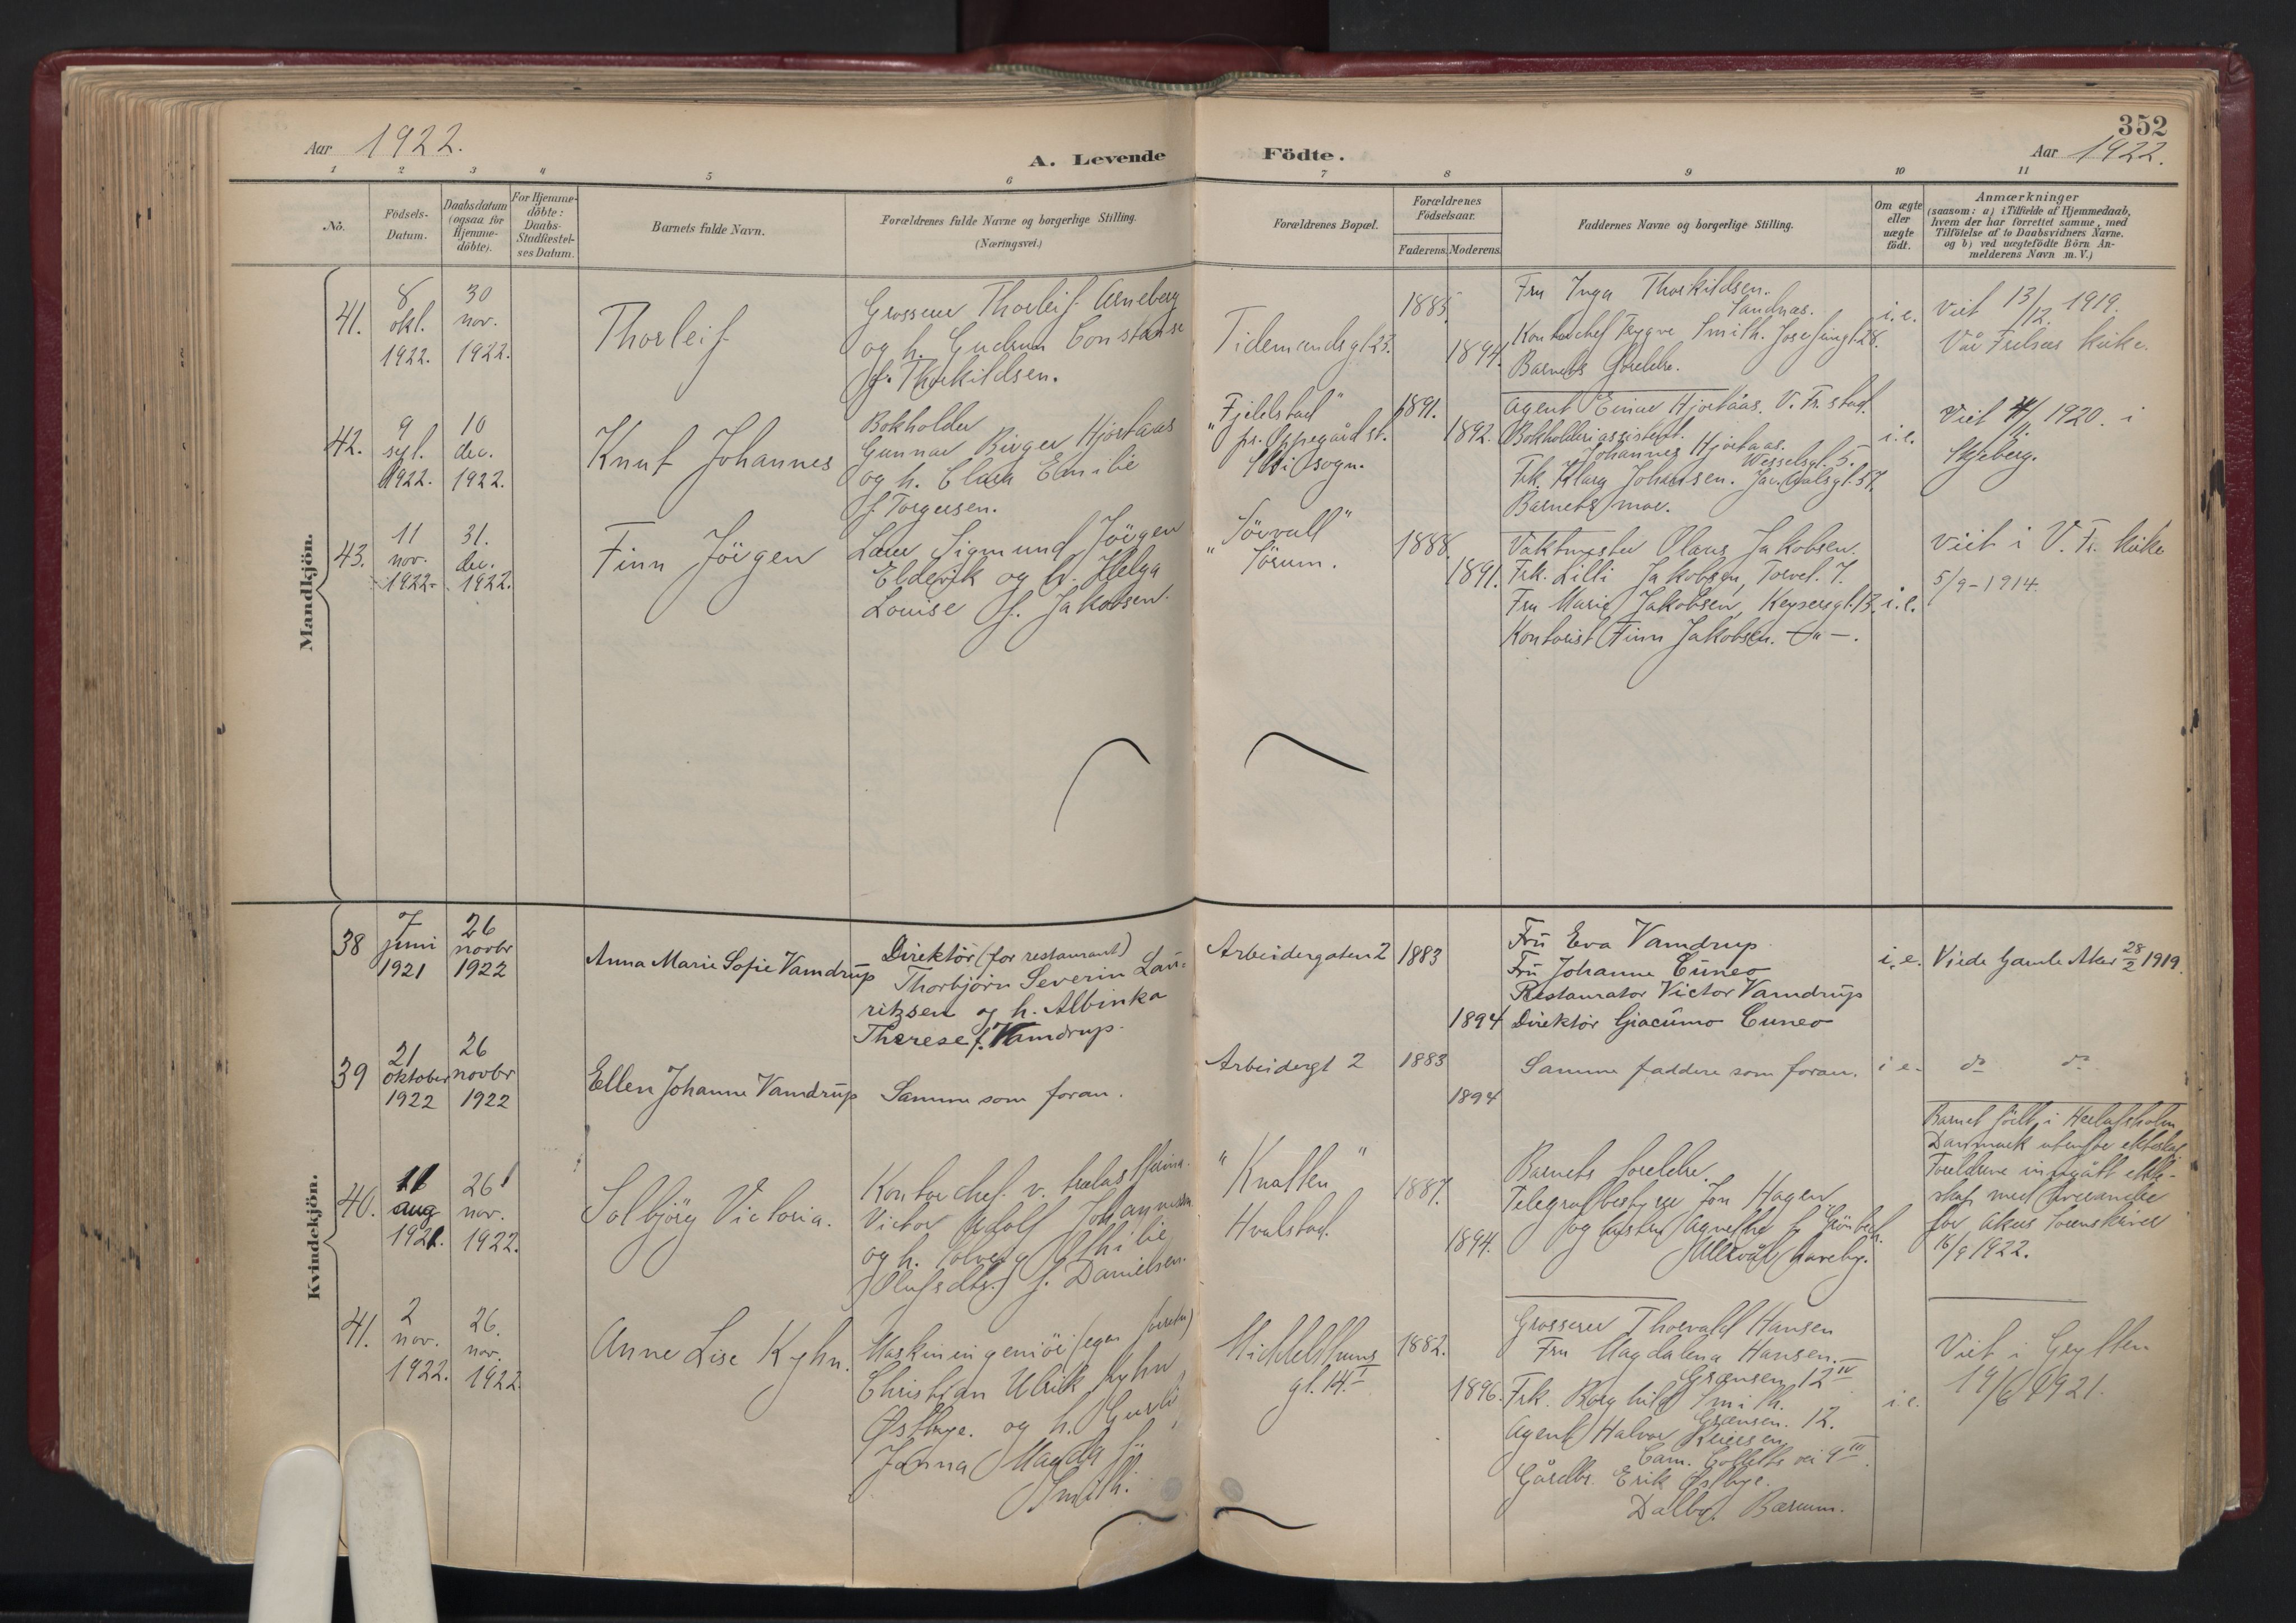 352
Aar 1922.
A. Levende Födte.
Aar 1922.
1 2 3 4 5 6 7 8 9 10 11
No.
Födsels-
Datum.
Daabsdatum
(ogsaa for
Hjemme-
döbte).
For Hjemme-
döbte:
Daabs-
Stadfæstel-
ses Datum.
Barnets fulde Navn.
Forældrenes fulde Navne og borgerlige Stilling.
(Næringsvei.)
Forældrenes Bopæl.
Forældrenes
Födselsaar.
Faderens. Moderens.
Faddernes Navne og borgerlige Stilling.
Om ægte
eller
uægte
födt.
Anmærkninger
(saasom: a) i Tilfælde af Hjemmedaab,
hvem der har forrettet samme, med
Tilföielse af to Daabsvidners Navne.
og b) ved uægtefödte Börn An-
melderens Navn m. V.)
Mandkjön.
41.
8
okt.
1922.
30
nov.
1922.
Thorleif
Grosserer Thorleif Arneberg
og h. Gudrun Constanse
f. Thorkildsen.
Tidemandsgt. 23.
1885.
1894.
Fru Inga Thorkildsen.
Sandnæs.
Kontorchef Trygve Smith. Josefinegt. 28.
Barnets forældre.
i.e.
Viet 13/12 1919.
Vår Frelsers kirke.
42.
9
spt.
1922.
10
dec.
1922.
Knut Johannes
Bokholder
Gunnar Birger Hjortaas
og h. Clara Emilie
f. Torgersen.
"Fjeldstad"
pr. Oppegård st.
Ski sogn.
1891.
1892.
Agent Einar Hjortaas. V. Fr. stad.
Bokholderiassistent.
Johannes Hjortaas.
Wesselsgt. 5.
Frk. Klara Johansen. Jac. Aalsgt. 57.
Barnets mor.
i.e.
Viet 4/11 1920. i
Skjeberg.
43.
11
nov.
1922.
31.
dec.
1922.
Finn Jörgen
Lærer Sigmund Jörgen
Eldevik og h. Helga
Louise f. Jakobsen.
"Sörvall"
Sörum.
1888.
1891.
Vaktmester Olaus Jakobsen.
Frk. Lilli Jakobsen, Torvet. 7.
Fru Marie Jakobsen, Keysersgt. 13.
Kontorist Finn Jakobsen. - " -.
i.e.
Viet i V. Fr. kirke
5/9-1914.
Kvindekjön.
38
7
juni
1921
26
novbr
1922
Anna Marie Sofie Vamdrup
Direktör (for restaurant)
Thorbjörn Severin Lau-
ritzsen og h. Albinka
Therese f. Vamdrup.
Arbeidergaten 2
1883
1894
Fru Eva Vamdrup
Fru Johanne Cuneo
Restaurator Victor Vamdrup
Direktör Giacumo Cuneo
i.e.
Viede Gamle Aker 28/2 1919.
39
21
oktober
1922
26
novbr
1922
Ellen Johanne Vamdrup
Samme som foran.
Arbeidergt 2
1883
1894
Samme faddere som foran.
i e.
do do
40.
aug
1921.
26
nov.
1922.
Solbjörg Victoria.
Kontorchef. v.
Victor Adolf Johannessen
og h. Solveig Othilie
(Olufsdtr.) f. Danielsen.
"Knatten"
Hvalstad.
1887.
1894.
Barnets foreldre.
Telegrafbestyrer Jon Hagen
og hustru Agnethe f. Grönbech.
Ullevål haveby.
Barnet född i Herlufsholm
Danmark utenfor ekteskap
Foreldrene inngått ekte-
skap med
for Akers sorenskriver
16/9 1922.
41.
2
nov.
1922.
26.
nov.
1922
Anne Lise Kyhn.
Maskiningeniör (egen forretn)
Christian Ulrik Kyhn
Østbye. og h. Gurli
Janna Magda f.
Smith.
Middelthuns
gt. 14.I
1882.
1896.
Grosserer Thorvald Hansen
Fru Magdalena Hansen.
Grænsen 12 IV
Frk. Borghild Smith.
Grænsen. 12.
Agent Halvor
Cam. Colletts vei 9 III.
Gårdbr. Erik Østbye.
Dalbo. Bærum.
i.e.
Viet i Grytten
19/6 1921.